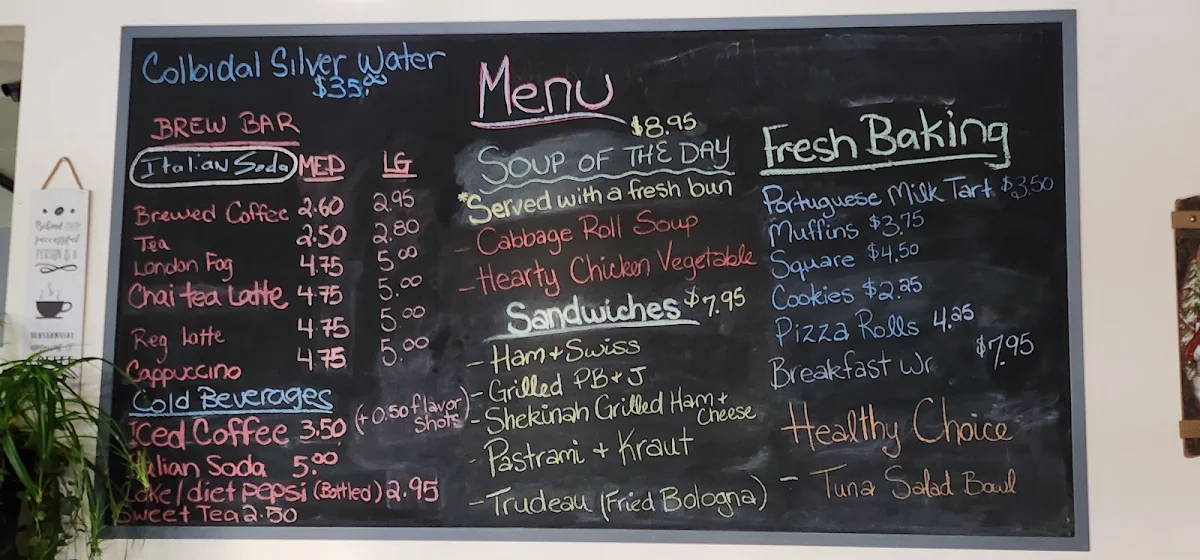 Colloidal Silver Water
$35.00
BREW BAR
Italian Soda MED LG
Brewed Coffee 2.60 2.95
Tea 2.50 2.80
London Fog 4.75 5.00
Chai tea Latte 4.75 5.00
Reg latte 4.75 5.00
Cappuccino 4.75 5.00
Cold Beverages
Iced Coffee 3.50 (+0.50 flavor shots)
Italian Soda 5.00
Coke/diet pepsi (Bottled) 2.95
Sweet Tea 2.50
Menu
$8.95
SOUP OF THE DAY
*Served with a fresh bun
- Cabbage Roll Soup
- Hearty Chicken Vegetable
Sandwiches $7.95
- Ham + Swiss
- Grilled PB + J
- Shekinah Grilled Ham + Cheese
- Pastrami + Kraut
- Trudeau (Fried Bologna)
Fresh Baking
Portuguese Milk Tart $3.50
Muffins $3.75
Square $4.50
Cookies $2.25
Pizza Rolls 4.25
Breakfast Wr $7.95
Healthy Choice
- Tuna Salad Bowl